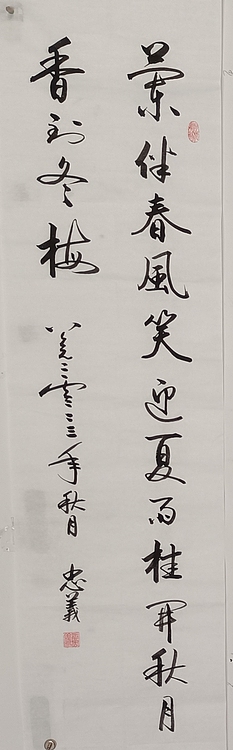 蘭伴春風笑迎夏雨桂開秋月
香到冬梅
二零二三年秋月 忠義